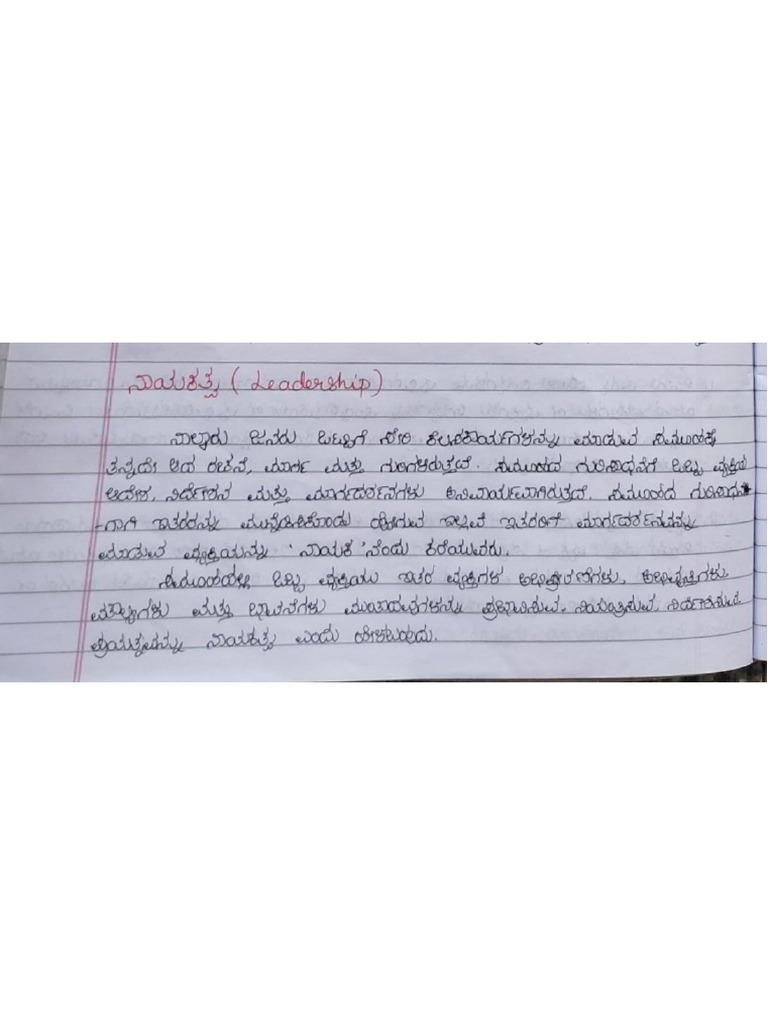 ನಾಯಕತ್ವ ( Leadership)
ನಾಲ್ಕಾರು ಜನರು ಒಟ್ಟಿಗೆ ಸೇರಿ ಕೆಲಸಕಾರ್ಯಗಳನ್ನು ಮಾಡುವ ಸಮೂಹಕ್ಕೆ
ತನ್ನದೇ ಆದ ಉದ್ದೇಶ, ಮಾರ್ಗ ಮತ್ತು ಗುರಿಗಳಿರುತ್ತವೆ. ಸಮೂಹದ ಗುರಿಸಾಧನೆಗೆ ಒಬ್ಬ ವ್ಯಕ್ತಿಯ
ಆದೇಶ, ನಿರ್ದೇಶನ ಮತ್ತು ಮಾರ್ಗದರ್ಶನಗಳು ಅನಿವಾರ್ಯವಾಗಿರುತ್ತದೆ. ಸಮೂಹದ ಗುರಿಸಾಧನೆ
-ಗಾಗಿ ಇತರರನ್ನು ಹೋಗುವ ಇಲ್ಲವೆ ಇತರರಿಗೆ ಮಾರ್ಗದರ್ಶನವನ್ನು
ಮಾಡುವ ವ್ಯಕ್ತಿಯನ್ನು 'ನಾಯಕ'ನೆಂದು ಕರೆಯುವರು.
ಸಮೂಹದಲ್ಲಿ ಒಬ್ಬ ವ್ಯಕ್ತಿಯು ಇತರ ವ್ಯಕ್ತಿಗಳ ಅಭಿಪ್ರೇರಣೆಗಳು,
ಮೌಲ್ಯಗಳು ಮತ್ತು ಭಾವನೆಗಳು ಮುಂತಾದವುಗಳನ್ನು ಪ್ರಭಾವಿಸುವ, ನಿಯಂತ್ರಿಸುವ, ನಿರ್ದೇಶಿಸುವ
ಪ್ರಯತ್ನವನ್ನು ನಾಯಕತ್ವ ಎಂದು ಹೇಳಬಹುದು.